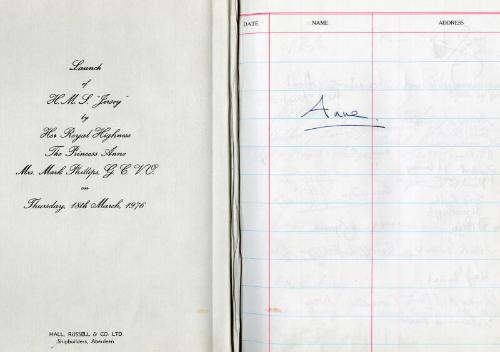 Launch
of
H.M.S. "Jersey"
by
Her Royal Highness
The Princess Anne
Mrs. Mark Phillips, G.C.V.O.
on
Thursday, 18th March, 1976
HALL, RUSSELL & CO. LTD.
Shipbuilders, Aberdeen
DATE NAME ADDRESS
Anne.